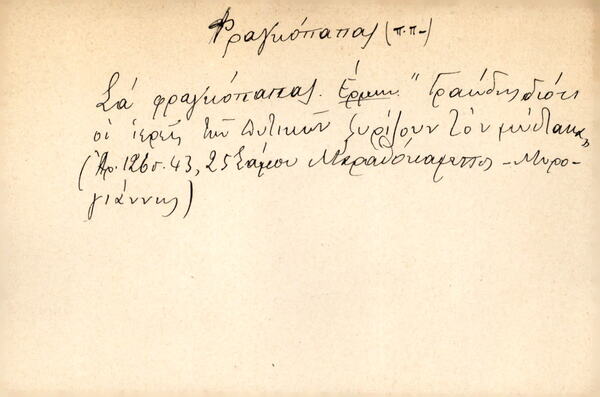 Φραγκόπαπας (π.π.)
Σά φραγκόπαπας. Ἑρμην. "Γραώδης, διότι
οἱ ἱερεῖς τῶν Δυτικῶν ξυρίζουν τόν μύστακα"
(Ἀρ. 126 σ. 43, 25 Σάμου Μαραθόκαμπος – Μυρο-
γιάννης)